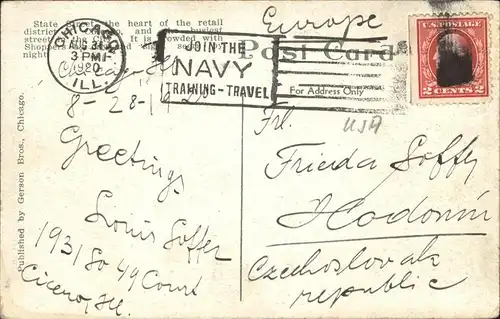 Europe
State Street, the heart of the retail
district
street
Shoppers
night
CHICAGO,
AUG 31
3 PM
1920
ILL.
JOIN THE
NAVY
TRAINING-TRAVEL
Post Card
For Address Only
U.S. POSTAGE
2 CENTS 2
USA
8-28-1920
Greetings
Louis Soffer
1931 So 49 Court
Cicero, Ill.
Frl.
Frieda Soffer
Hodonín
Czechoslovak
republic
Published by Gerson Bros., Chicago.